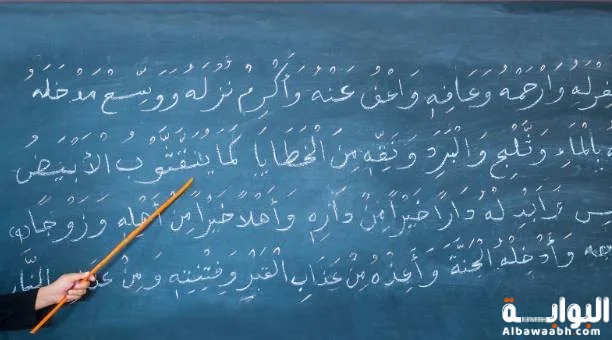 وَارْحَمْهُ وَعَافِهِ وَاعْفُ عَنْهُ وَأَكْرِمْ نُزُلَهُ وَوَسِّعْ مَدْخَلَهُ
بِالْمَاءِ وَثَلْجٍ وَالْبَرَدِ وَنَقِّهِ مِنَ الْخَطَايَا كَمَا الْأَبْيَضُ
دَارًا خَيْرًا مِنْ دَارِهِ وَأَهْلًا خَيْرًا مِنْ أَهْلِهِ وَزَوْجًا
وَأَدْخِلْهُ الْجَنَّةَ وَأَعِذْهُ مِنْ عَذَابِ الْقَبْرِ وَفِتْنَتِهِ وَمِنْ النَّار
البوابة
Albawaabh.com